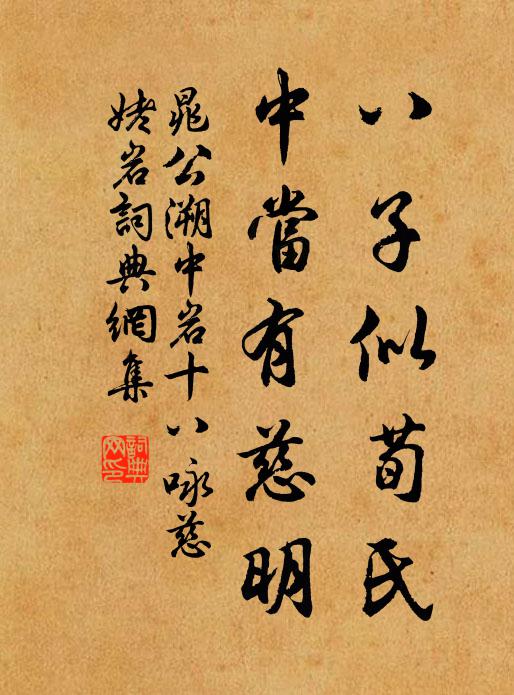 八子似荀氏
中當有慈明
晁公溯中岩十八咏慈
姥岩詞典網集
詞典网印